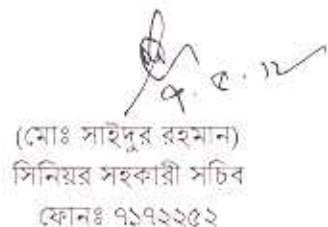 ৭.৫.১২
(মোঃ সাইদুর রহমান)
সিনিয়র সহকারী সচিব
ফোনঃ ৭১৭২২৫২